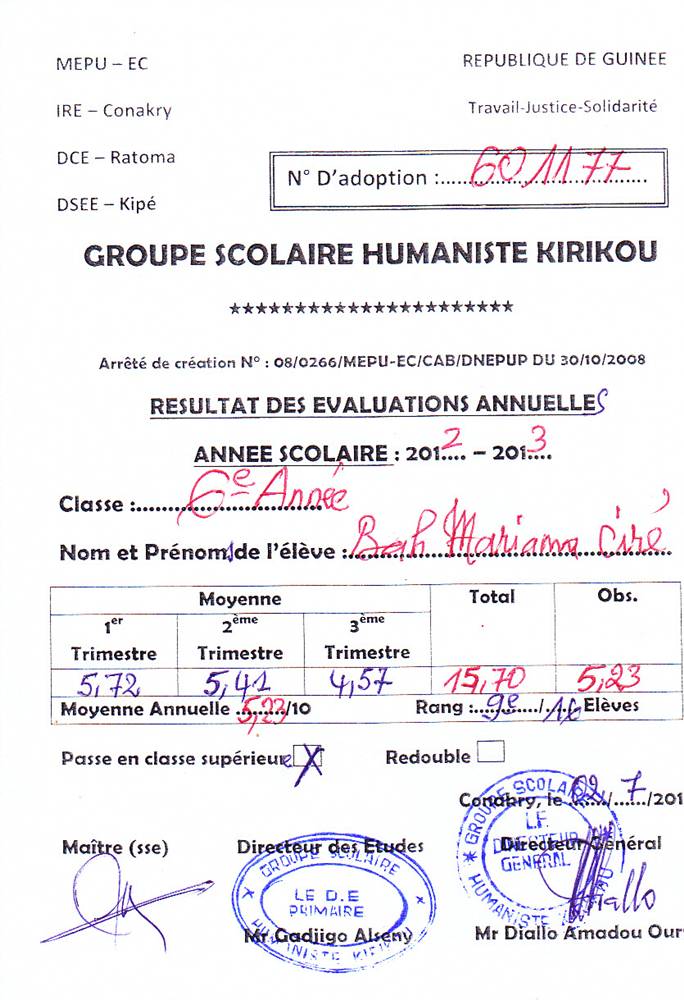 MEPU – EC
REPUBLIQUE DE GUINEE
IRE – Conakry
Travail-Justice-Solidarité
DCE – Ratoma
N° D'adoption :......601177......
DSEE – Kipé
GROUPE SCOLAIRE HUMANISTE KIRIKOU
**********************
Arrêté de création N° : 08/0266/MEPU-EC/CAB/DNEPUP DU 30/10/2008
RESULTAT DES EVALUATIONS ANNUELLES
ANNEE SCOLAIRE : 2012 – 2013
Classe :......6e Année
Nom et Prénoms de l'élève : Bah Mariama Ciré
Moyenne Total Obs.
1er Trimestre 2ème Trimestre 3ème Trimestre
5,72 5,41 4,57 15,70 5,23
Moyenne Annuelle 5,23/10 Rang : 9e / 16 Elèves
Passe en classe supérieure X Redouble
Conakry, le 02/7/201
Maître (sse) Directeur des Etudes Directeur Général
GROUPE SCOLAIRE
LE D.E
PRIMAIRE
HUMANISTE KIRIKOU
GROUPE SCOLAIRE
LE
DIRECTEUR
GENERAL
HUMANISTE
Diallo
Mr Gadjigo Alseny Mr Diallo Amadou Our